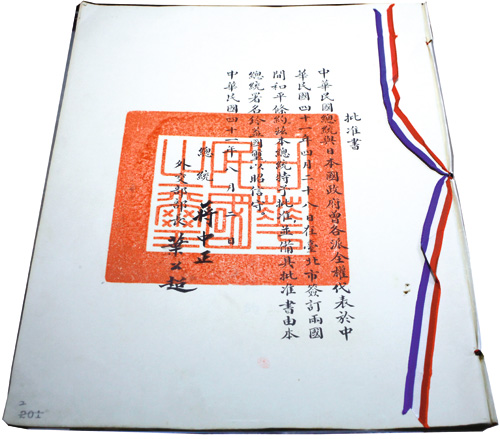 批准書
中華民國總統與日本國政府曾各派全權代表於中
華民國四十一年四月二十八日在臺北市簽訂兩國
間和平條約茲本總統特予批准並備具批准書由本
總統署名鈐蓋國璽以昭信守
中華民國四十一年八月二日
總統 蔣中正
外交部部長 葉公超
中華
民國
之璽
2
205